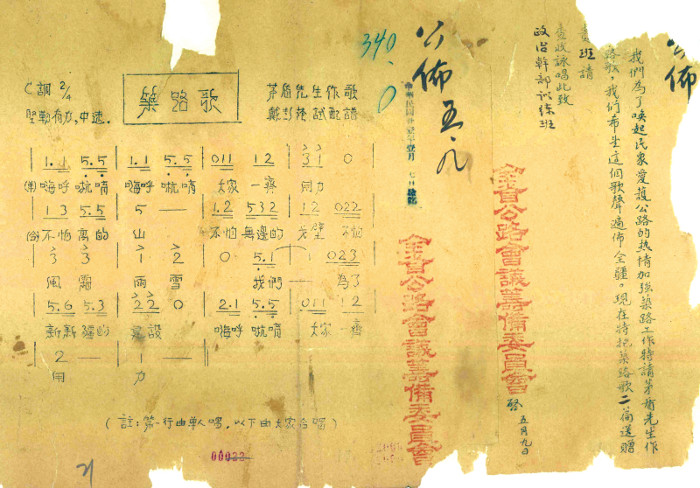 公佈
我們為了喚起民衆愛護公路的热情加強築路工作特請茅盾先生作
路歌，我們希望這個歌聲遍佈全疆。現在特把築路歌二篇送贈
貴班請
查收詠唱此致
政治幹部訓练班
全省公路會議籌備委員會 啓
五月九日
公佈 五.九
340.
全省公路會議籌備委員會
築路歌
C調 2/4
堅動有力，中速.
茅盾先生作歌
試配譜
| 1.1 5.5 | 1.1 5.5 | 011 12 | 31 0
(領)嗨呼吭唷 嗨呼吭唷 大家一齊 用力
| 13 5.5 | 5 — | 1.2 532 | 12 022
(合)不怕高的 山 不怕無邊的 戈壁 不怕
| 3 3 | 1 2 | 0 5.1 | 1 023
風霜 雨雪 我們— 為了
| 5.6 5.3 | 22 0 | 2.1 5.5 | 011 12
新新疆的 建設 嗨呼吭唷 大家一齊
| 2 — | 1 — |
用 力
(註:第一行由單人唱，以下由大家合唱)
00022
21